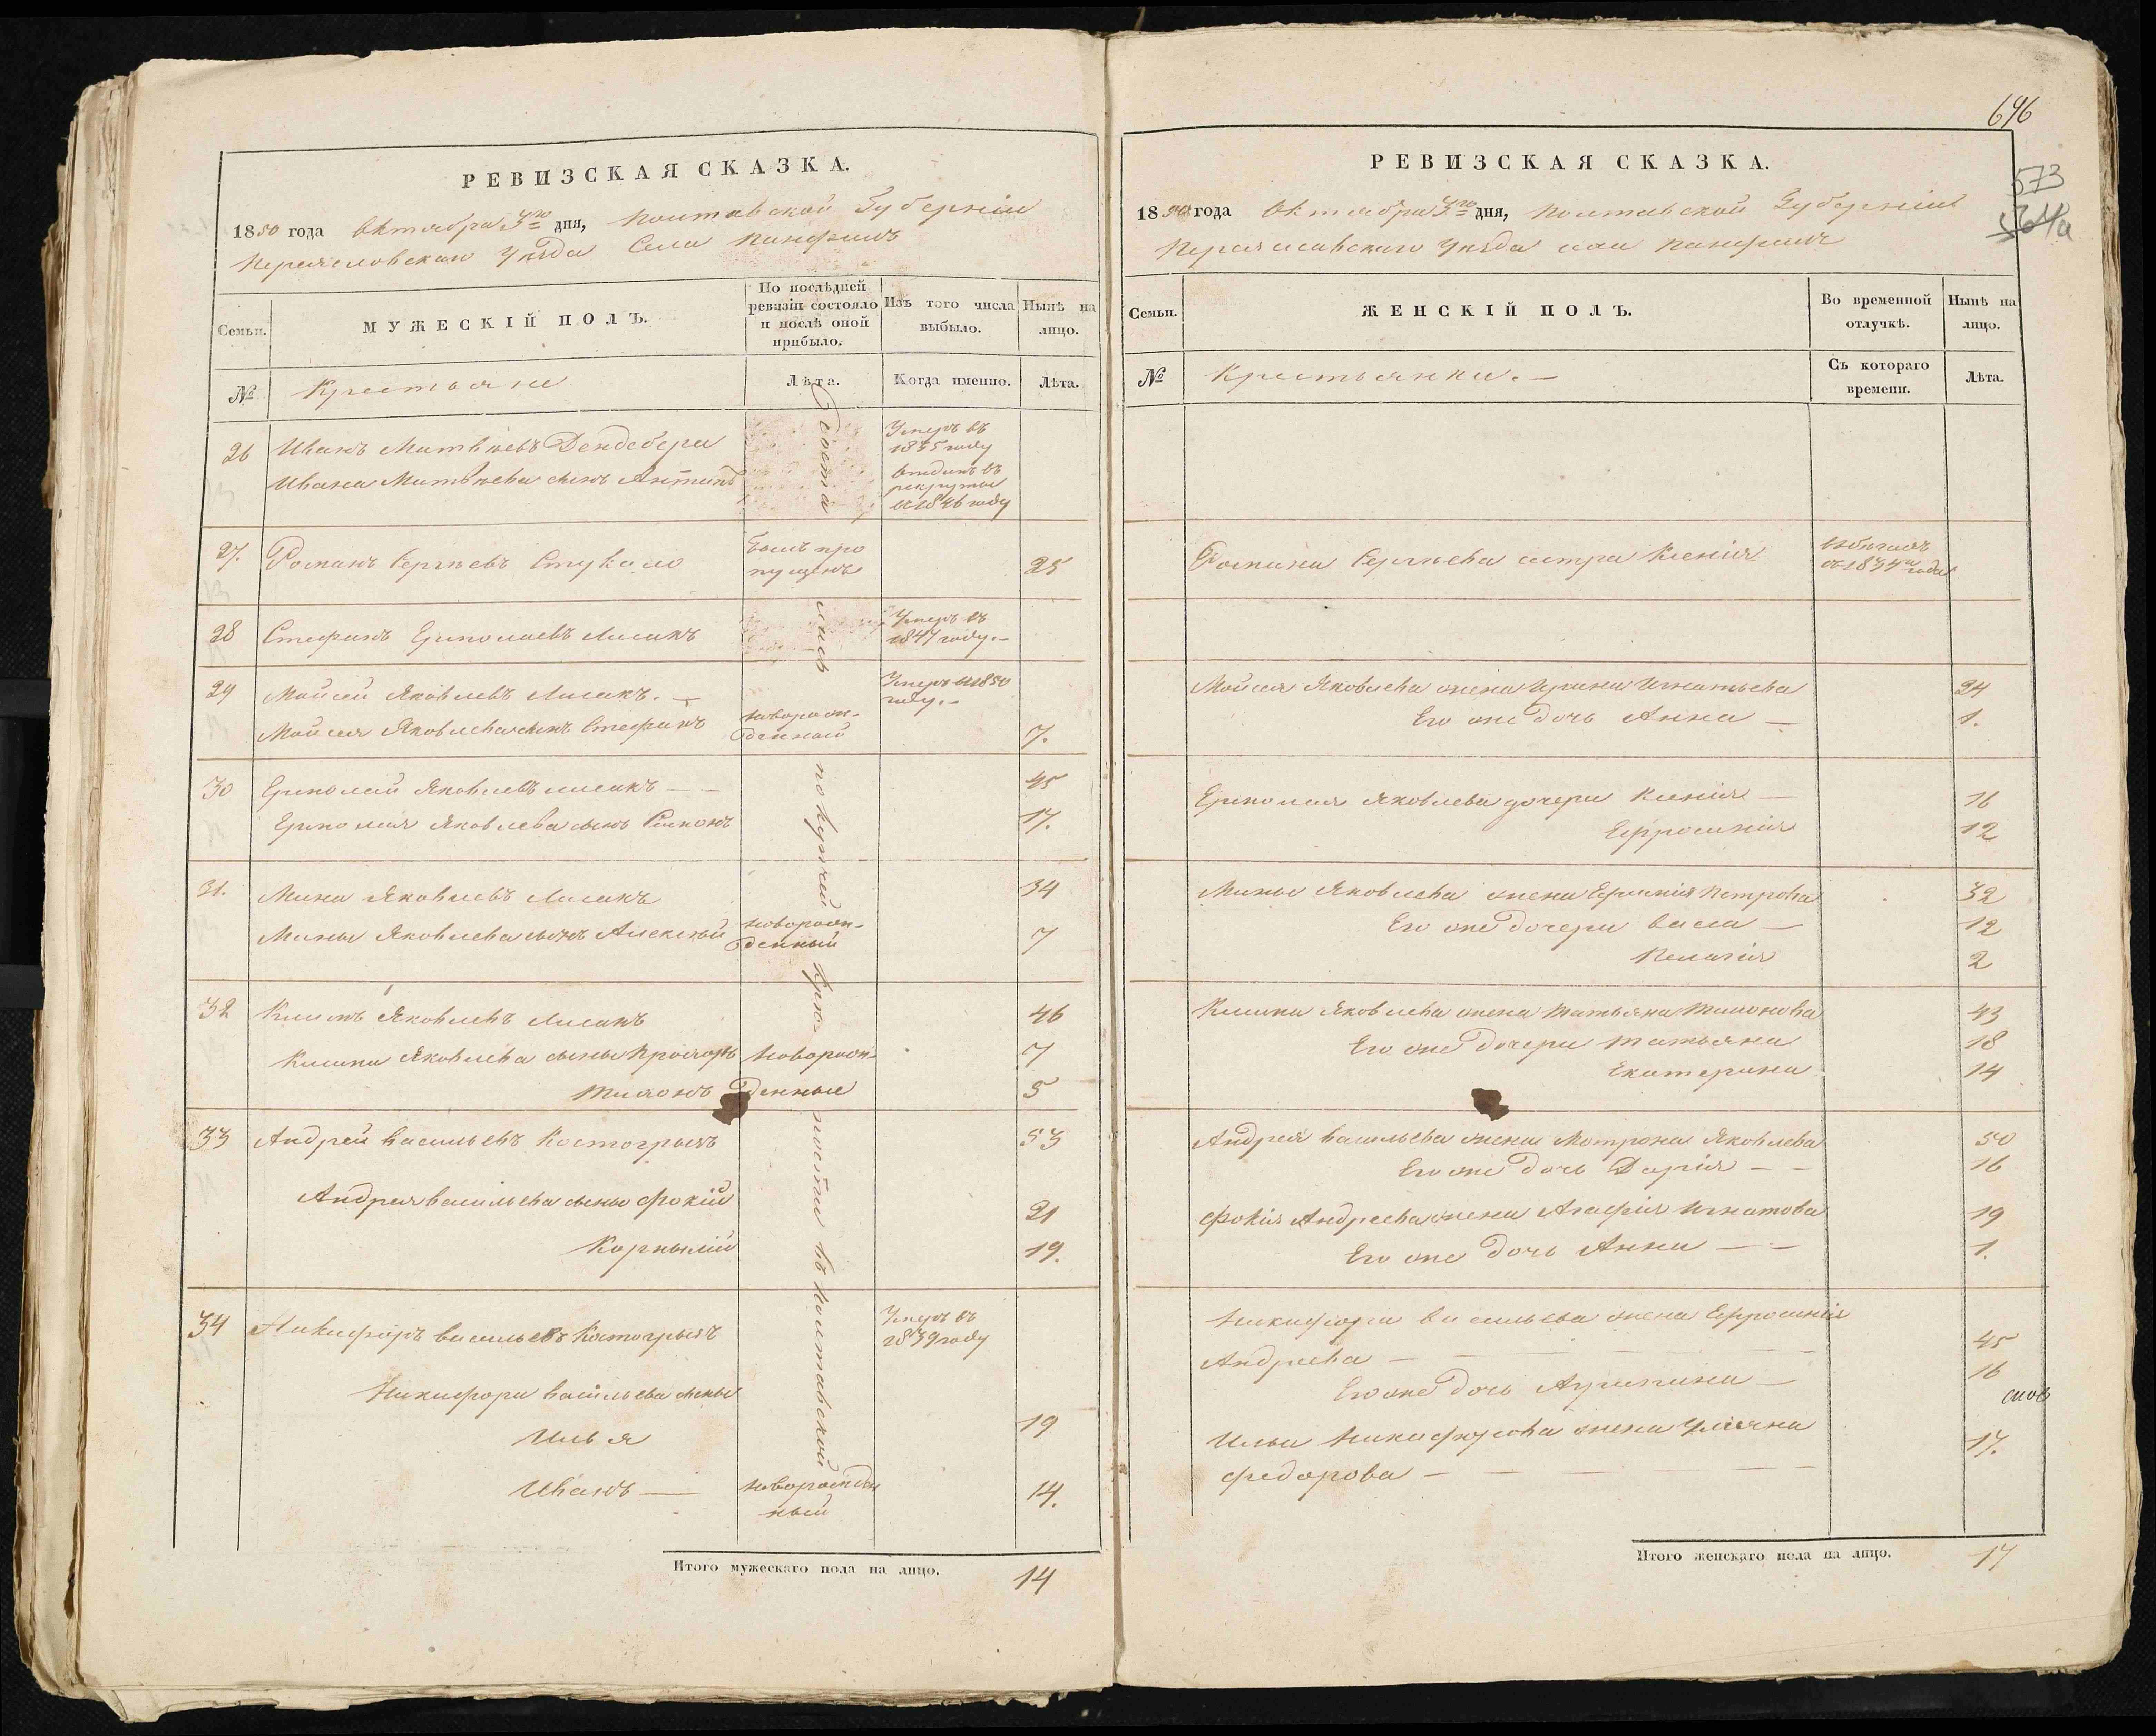 РЕВИЗСКАЯ СКАЗКА.
1850 года Октября 3го дня, Полтавской Губерніи
Переяславскаго Уѣзда Села Панфилъ
Семьи.
МУЖЕСКІЙ ПОЛЪ.
По послѣдней
ревизіи состояло
и послѣ оной
прибыло.
Изъ того числа
выбыло.
Нынѣ на
лицо.
№
Крестьяне
Лѣта.
Когда именно.
Лѣта.
26 Иванъ Матвѣевъ Дендебера
Умеръ въ
1835 году
Ивана Матвѣева сынъ Антипъ
отданъ въ
рекруты
въ 1846 году
27. Романъ Сергѣевъ Стукало
былъ про
пущенъ
25
28 Стефанъ Ермолаевъ Лисакъ
Умеръ въ
1847 году.
29 Мойсей Яковлевъ Лисакъ.
Умеръ въ 1850
году.
Мойсея Яковлева сынъ Стефанъ
новорож-
денный
7.
30 Ермолай Яковлевъ Лисакъ
45
Ермолая Яковлева сынъ Симонъ
17.
31. Мина Яковлевъ Лисакъ
34
Мины Яковлева сынъ Алексѣй
новорож-
денный
7
32 Климъ Яковлевъ Лисакъ
46
Клима Яковлева сыны Прохоръ новорож-
7
Тихонъ денные
5
33 Андрей Васильевъ Костогрызъ
53
Андрея Васильева сыны Фокій
21
Корнылій
19.
34 Никифоръ Васильевъ Костогрызъ
Умеръ въ
1839 году
Никифора Васильева сыны
Илья
19
Иванъ
новорожден
ный
14.
Состо
ялъ по купчей крѣ-
пости въ Полтавской
Итого мужескаго пола на лицо.
14
696
573
РЕВИЗСКАЯ СКАЗКА.
1850 года Октября 3го дня, Полтавской Губерніи
Переяславскаго Уѣзда села Панфилъ
Семьи.
ЖЕНСКІЙ ПОЛЪ.
Во временной
отлучкѣ.
Нынѣ на
лицо.
№
Крестьянки.
Съ котораго
времени.
Лѣта.
Романа Сергѣева сестра Ксенія
въ бѣгахъ
съ 1834 года
Мойсея Яковлева жена Ирина Игнатьева
24
Его же дочь Анна
1.
Ермолая Яковлева дочери Ксенія
16
Ефросинія
12
Мины Яковлева жена Ефимія Петрова
32
Его же дочери Васса
12
Пелагія
2
Клима Яковлева жена Татьяна Тихонова
43
Его же дочери Татьяна
18
Екатерина
14
Андрея Васильева жена Мотрона Яковлева
50
Его же дочь Дарія
16
Фокія Андреева жена Агафія Игнатова
19
Его же дочь Анна
1.
Никифора Васильева жена Ефросинія
Андреева
45
Его же дочь Агрипина
16
Ильи Никифорова жена Уліяна
Федорова
17.
Итого женскаго пола на лицо.
17